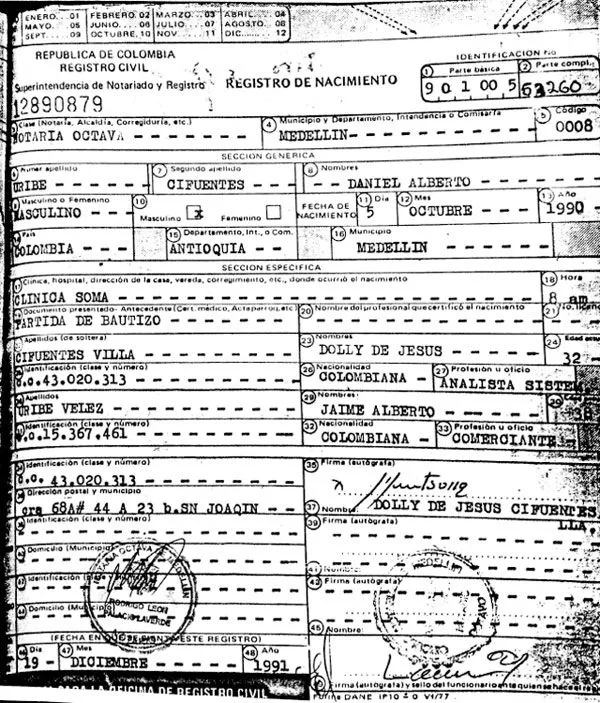 ENERO....01 FEBRERO. 02 MARZO...03 ABRIL....04
MAYO. 05 JUNIO....06 JULIO....07 AGOSTO..08
SEPT....09 OCTUBRE, 10 NOV....11 DIC.....12
REPUBLICA DE COLOMBIA
REGISTRO CIVIL
Superintendencia de Notariado y Registro
REGISTRO DE NACIMIENTO
IDENTIFICACION No
1 Parte básica 2 Parte compl.
901005 53260
12890879
3 Clase (Notaría, Alcaldía, Corregiduría, etc.) 4 Municipio y Departamento, Intendencia o Comisaría 5 Código
NOTARIA OCTAVA MEDELLIN 0008
SECCION GENERICA
6 Primer apellido 7 Segundo apellido 8 Nombres
URIBE CIFUENTES DANIEL ALBERTO
9 Masculino o Femenino 10 FECHA DE NACIMIENTO 11 Día 12 Mes 13 Año
MASCULINO Masculino X Femenino 5 OCTUBRE 1990
14 País 15 Departamento, Int., o Com. 16 Municipio
COLOMBIA ANTIOQUIA MEDELLIN
SECCION ESPECIFICA
17 Clínica, hospital, dirección de la casa, vereda, corregimiento, etc., donde ocurrió el nacimiento 18 Hora
CLINICA SOMA 8 am
19 Documento presentado- Antecedente (Cert. médico, Acta parroq. etc.) 20 Nombre del profesional que certificó el nacimiento 21 No. licencia
PARTIDA DE BAUTIZO
22 Apellidos (de soltera) 23 Nombres 24 Edad
CIFUENTES VILLA DOLLY DE JESUS 32
25 Identificación (clase y número) 26 Nacionalidad 27 Profesión u oficio
c.c.43.020.313 COLOMBIANA ANALISTA SISTEM
28 Apellidos 29 Nombres
URIBE VELEZ JAIME ALBERTO 38
31 Identificación (clase y número) 32 Nacionalidad 33 Profesión u oficio
c.c.15.367.461 COLOMBIANA COMERCIANTE
34 Identificación (clase y número) 35 Firma (autógrafa)
c.c. 43.020.313
36 Dirección postal y municipio 37 Nombre:
cra 68A# 44 A 23 b.SN JOAQIN DOLLY DE JESUS CIFUENTES
LLA.
38 Identificación (clase y número) 39 Firma (autógrafa)
40 Domicilio (Municipio) 41 Nombre:
42 Identificación (clase y número) 43 Firma (autógrafa)
NOTARIA OCTAVA MEDELLIN
RODRIGO LEON
PALACIO LAVERDE
44 Domicilio (Municipio) 45 Nombre:
(FECHA EN QUE SE SIENTA ESTE REGISTRO)
46 Día 47 Mes 48 Año
19 DICIEMBRE 1991
Firma (autógrafa) y sello del funcionario ante quien se hace el
PARA LA OFICINA DE REGISTRO CIVIL
Forma DANE IP10 - 0 VI/77